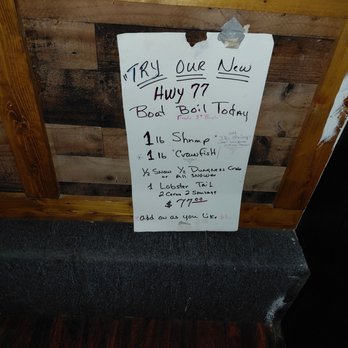 "TRY OUR New
Hwy 77
Boat Boil Today
1 lb Shrimp
1 lb Crawfish
½ Snow ½ Dungness Crab
or All Snower
1 Lobster Tail
2 Corn 2 Sausage
$77.00
add on as you Like.